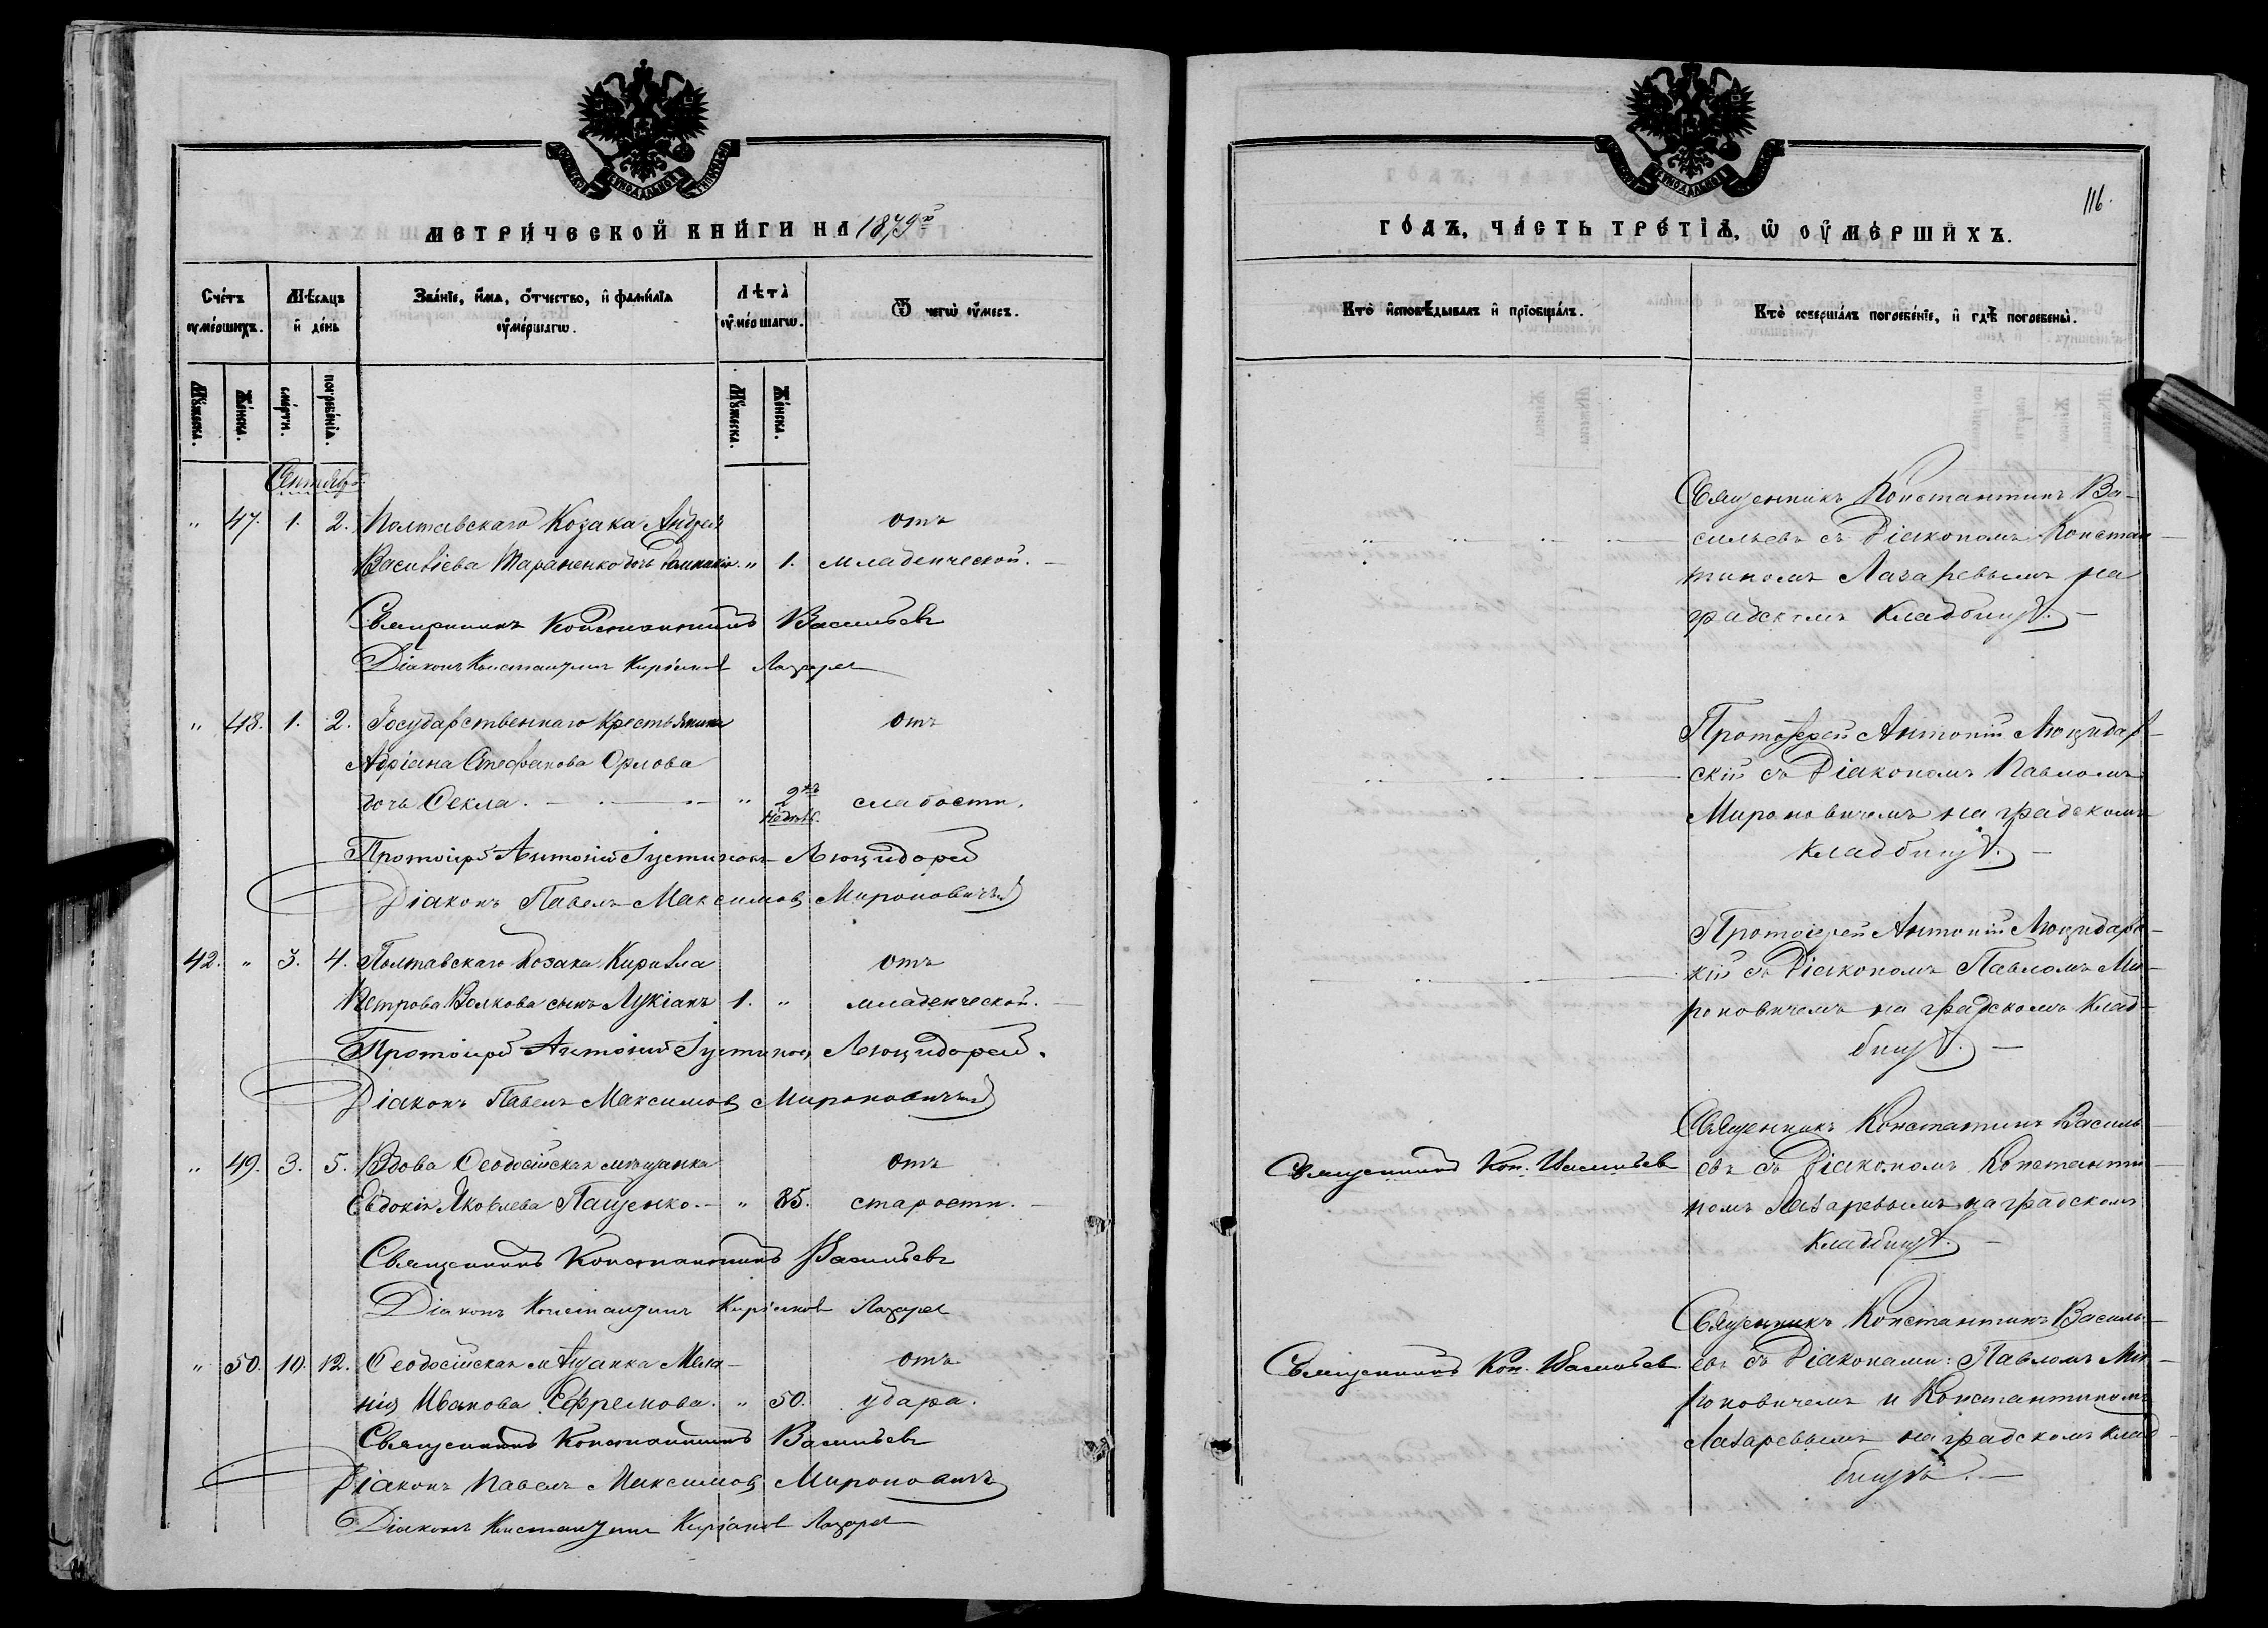 МЕТРИЧЕСКОЙ КНИГИ НА 1879й
Счетъ умершихъ.
Мѣсяцъ и день
Званіе, имя, отчество, и фамилія умершаго.
Лѣта умершаго.
Ѿ чего умеръ.
Мужеска.
Женска.
смерти.
погребенія.
Мужеска.
Женска.
Сентябрь
" 47. 1. 2. Полтавскаго Козака Андрея отъ
Василіева Тараненко дочь " 1. младенческой.
Священникъ Константинъ Васильевъ
Діаконъ Константинъ Лазаревъ
" 48. 1. 2. Государственнаго Крестьянина отъ
Адріана Стефанова Орлова
дочь Ѳекла. " 2хъ слабости.
недѣль.
Протоіерей Антоній Іустиновъ
Діаконъ Павелъ Максимовъ Мироновичъ
42. " 3. 4. Полтавскаго Козака Кирилла отъ
Петрова Волкова сынъ Лукіанъ 1. " младенческой.
Протоіерей Антоній Іустиновъ
Діаконъ Павелъ Максимовъ Мироновичъ
" 49. 3. 5. Вдова Ѳеодосійская мѣщанка отъ
Евдокія Яковлева Пащенко. " 85. старости.
Священникъ Константинъ Васильевъ
Діаконъ Константинъ Лазаревъ
" 50. 10. 12. Ѳеодосійская мѣщанка Мела- отъ
нія Иванова Ефремова. " 50. удара.
Священникъ Константинъ Васильевъ
Діаконъ Павелъ Максимовъ Мироновичъ
Діаконъ Константинъ Лазаревъ
116.
ГОДЪ, ЧАСТЬ ТРЕТІЯ, Ѡ УМЕРШИХЪ.
Кто исповѣдывалъ и пріобщалъ.
Кто совершалъ погребеніе, и гдѣ погребены.
Священникъ Константинъ Ва-
сильевъ съ Діакономъ Констан-
тиномъ Лазаревымъ на
градскомъ кладбищѣ.
Протоіерей Антоній Люцидар-
скій съ Діакономъ Павломъ
Мироновичемъ на градскомъ
кладбищѣ.
Протоіерей Антоній Люцидарс-
кій съ Діакономъ Павломъ Ми-
роновичемъ на градскомъ клад-
бищѣ.
Священникъ Константинъ Василь
Священникъ Кон. Васильев евъ съ Діакономъ Константи-
номъ Лазаревымъ на градскомъ
кладбищѣ.
Священникъ Константинъ Василь-
Священникъ Кон. Васильев евъ съ Діаконами: Павломъ Ми-
роновичемъ и Константиномъ
Лазаревымъ на градскомъ клад-
бищѣ.